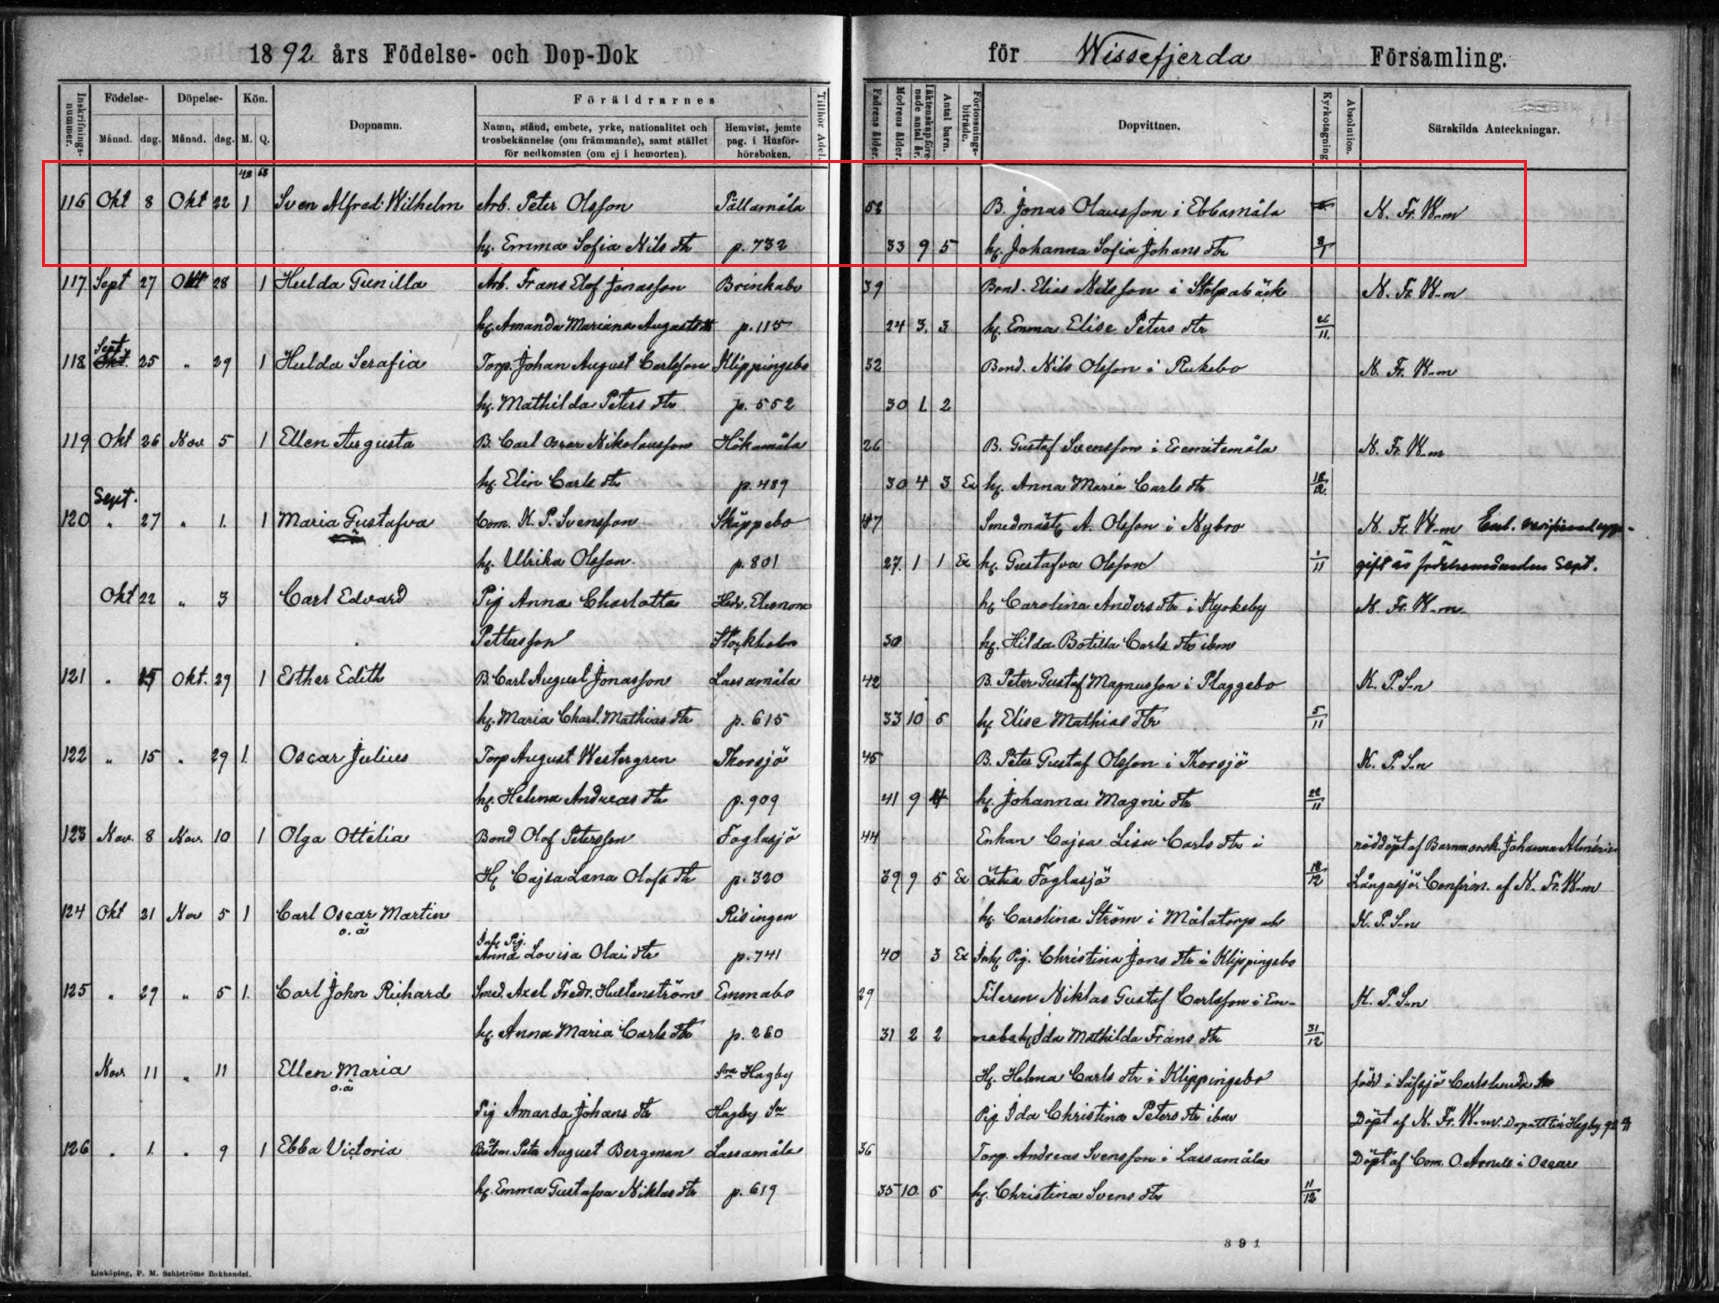 1892 års Födelse- och Dop-Bok för Wissefjerda Församling.
Inskrifnings-nummer. Födelse- Månad. dag. Döpelse- Månad. dag. Kön. M. Q. Dopnamn. Föräldrarnes Namn, stånd, embete, yrke, nationalitet och trosbekännelse (om främmande), samt stället för nedkomsten (om ej i hemorten). Hemvist, jemte pag. i Husför-hörsboken. Tillhör Adel. Fadrens ålder. Modrens ålder. Äktenskapsförenade antal år. Antal barn. Förlossnings-biträde. Dopvittnen. Kyrkotagning Absolution. Särskilda Anteckningar.
48 68
116 Okt 8 Okt 22 1 Sven Alfred Wilhelm Arb. Peter Olsson Pällamåla 52 B. Jonas Olausson i Ebbamåla N. Fr. W-m
hj. Emma Sofia Nils dtr p. 732 33 9 5 hj. Johanna Sofia Johans dtr
117 Sept 27 Okt 28 1 Hulda Gunilla Arb. Frans Elof Jonasson Brinkabo 39 Bond. Elias Nilsson i Stolpabäck N. Fr. W-m
hj. Amanda Mariana August dtr p. 115 24 3 3 hj. Emma Elise Peters dtr
Sept
118 Okt. 25 " 29 1 Hulda Serafia Torp. Johan August Carlsson Klippingsbo 32 Bond. Nils Olsson i Rukebo N. Fr. W-m
hj. Mathilda Peters dtr p. 552 30 1 2
119 Okt 26 Nov. 5 1 Ellen Augusta B. Carl Oscar Nikolausson Hökamåla 26 B. Gustaf Svensson i Eremitemåla N. Fr. W-m
hj. Elin Carls dtr p. 489 30 4 3 Ex hj. Anna Maria Carls dtr 18/12
Sept.
120 " 27 " 1. 1 Maria Gustafva Com. K. P. Svensson Skäppebo 47 Smedmäst. A. Olsson i Nybro N. Fr. W-m Enl.
hj. Ulrika Olsson p. 801 27 1 1 Ex hj. Gustafva Olsson 1/11 gift är födelsemånaden Sept.
Okt 22 " 3 Carl Edvard Pig Anna Charlotta Hedv. Eleonora hj. Carolina Anders dtr i Kyrkeby N. Fr. W-m
Pettersson Stockholm 30 hj. Hilda Botilla Carls dtr ibm
121 " 15 Okt. 29 1 Esther Edith B. Carl August Jonasson Lassamåla 42 B. Peter Gustaf Magnusson i Plaggebo K. P. S-n
hj. Maria Charl. Mathias dtr p. 615 33 10 5 hj Elise Mathias dtr 5/11
122 " 15 " 29 1. Oscar Julius Torp August Westergren Thorsjö 45 B. Peter Gustaf Olsson i Thorsjö K. P. S-n
hj. Helena Andreas dtr p. 909 41 9 4 hj. Johanna Magni dtr 22/11
123 Nov. 8 Nov. 10 1 Olga Ottilia Bond Olof Petersson Foglasjö 44 Enkan Cajsa Lisa Carls dtr i nöddöpt af Barnmorsk. Johanna
Hj Cajsa Lena Olofs dtr p. 320 39 9 5 Ex Östra Foglasjö 18/12 Långasjö Confirm. af N. Fr. W-m
124 Okt 21 Nov 5 1 Carl Oscar Martin Risingen hj. Carolina Ström i Målatorp och K. P. S-n
o.ä Inh. Pig. Anna Lovisa Olai dtr p. 741 40 3 Ex Inh. Pig. Christina Jons dtr i Klippingsbo
125 " 29 " 5 1. Carl John Richard Smed. Axel Fredr. Hultenström Emmabo 29 Filaren Niklas Gustaf Carlsson i Em-
hj. Anna Maria Carls dtr p. 260 31 2 2 mabo hj Ida Mathilda Frans dtr 31/12 K. P. S-n
Nov. 11 " 11 Ellen Maria Hagby Hj. Helena Carls dtr i Klippingsbo född i Säfsjö
o.ä Pig Amanda Johans dtr Hagby Sn Pig Ida Christina Peters dtr ibm Döpt af N. Fr. W-m
126 " 1. " 9 1 Ebba Victoria Båtsm. Peter August Bergman Lassamåla 36 Torp. Andreas Svensson i Lassamåla Döpt af Com. O. i Oscar
hj. Emma Gustafva Niklas dtr p. 619 35 10 5 hj. Christina Svens dtr 11/12
391
Linköping, P. M. Sahlströms Bokhandel.